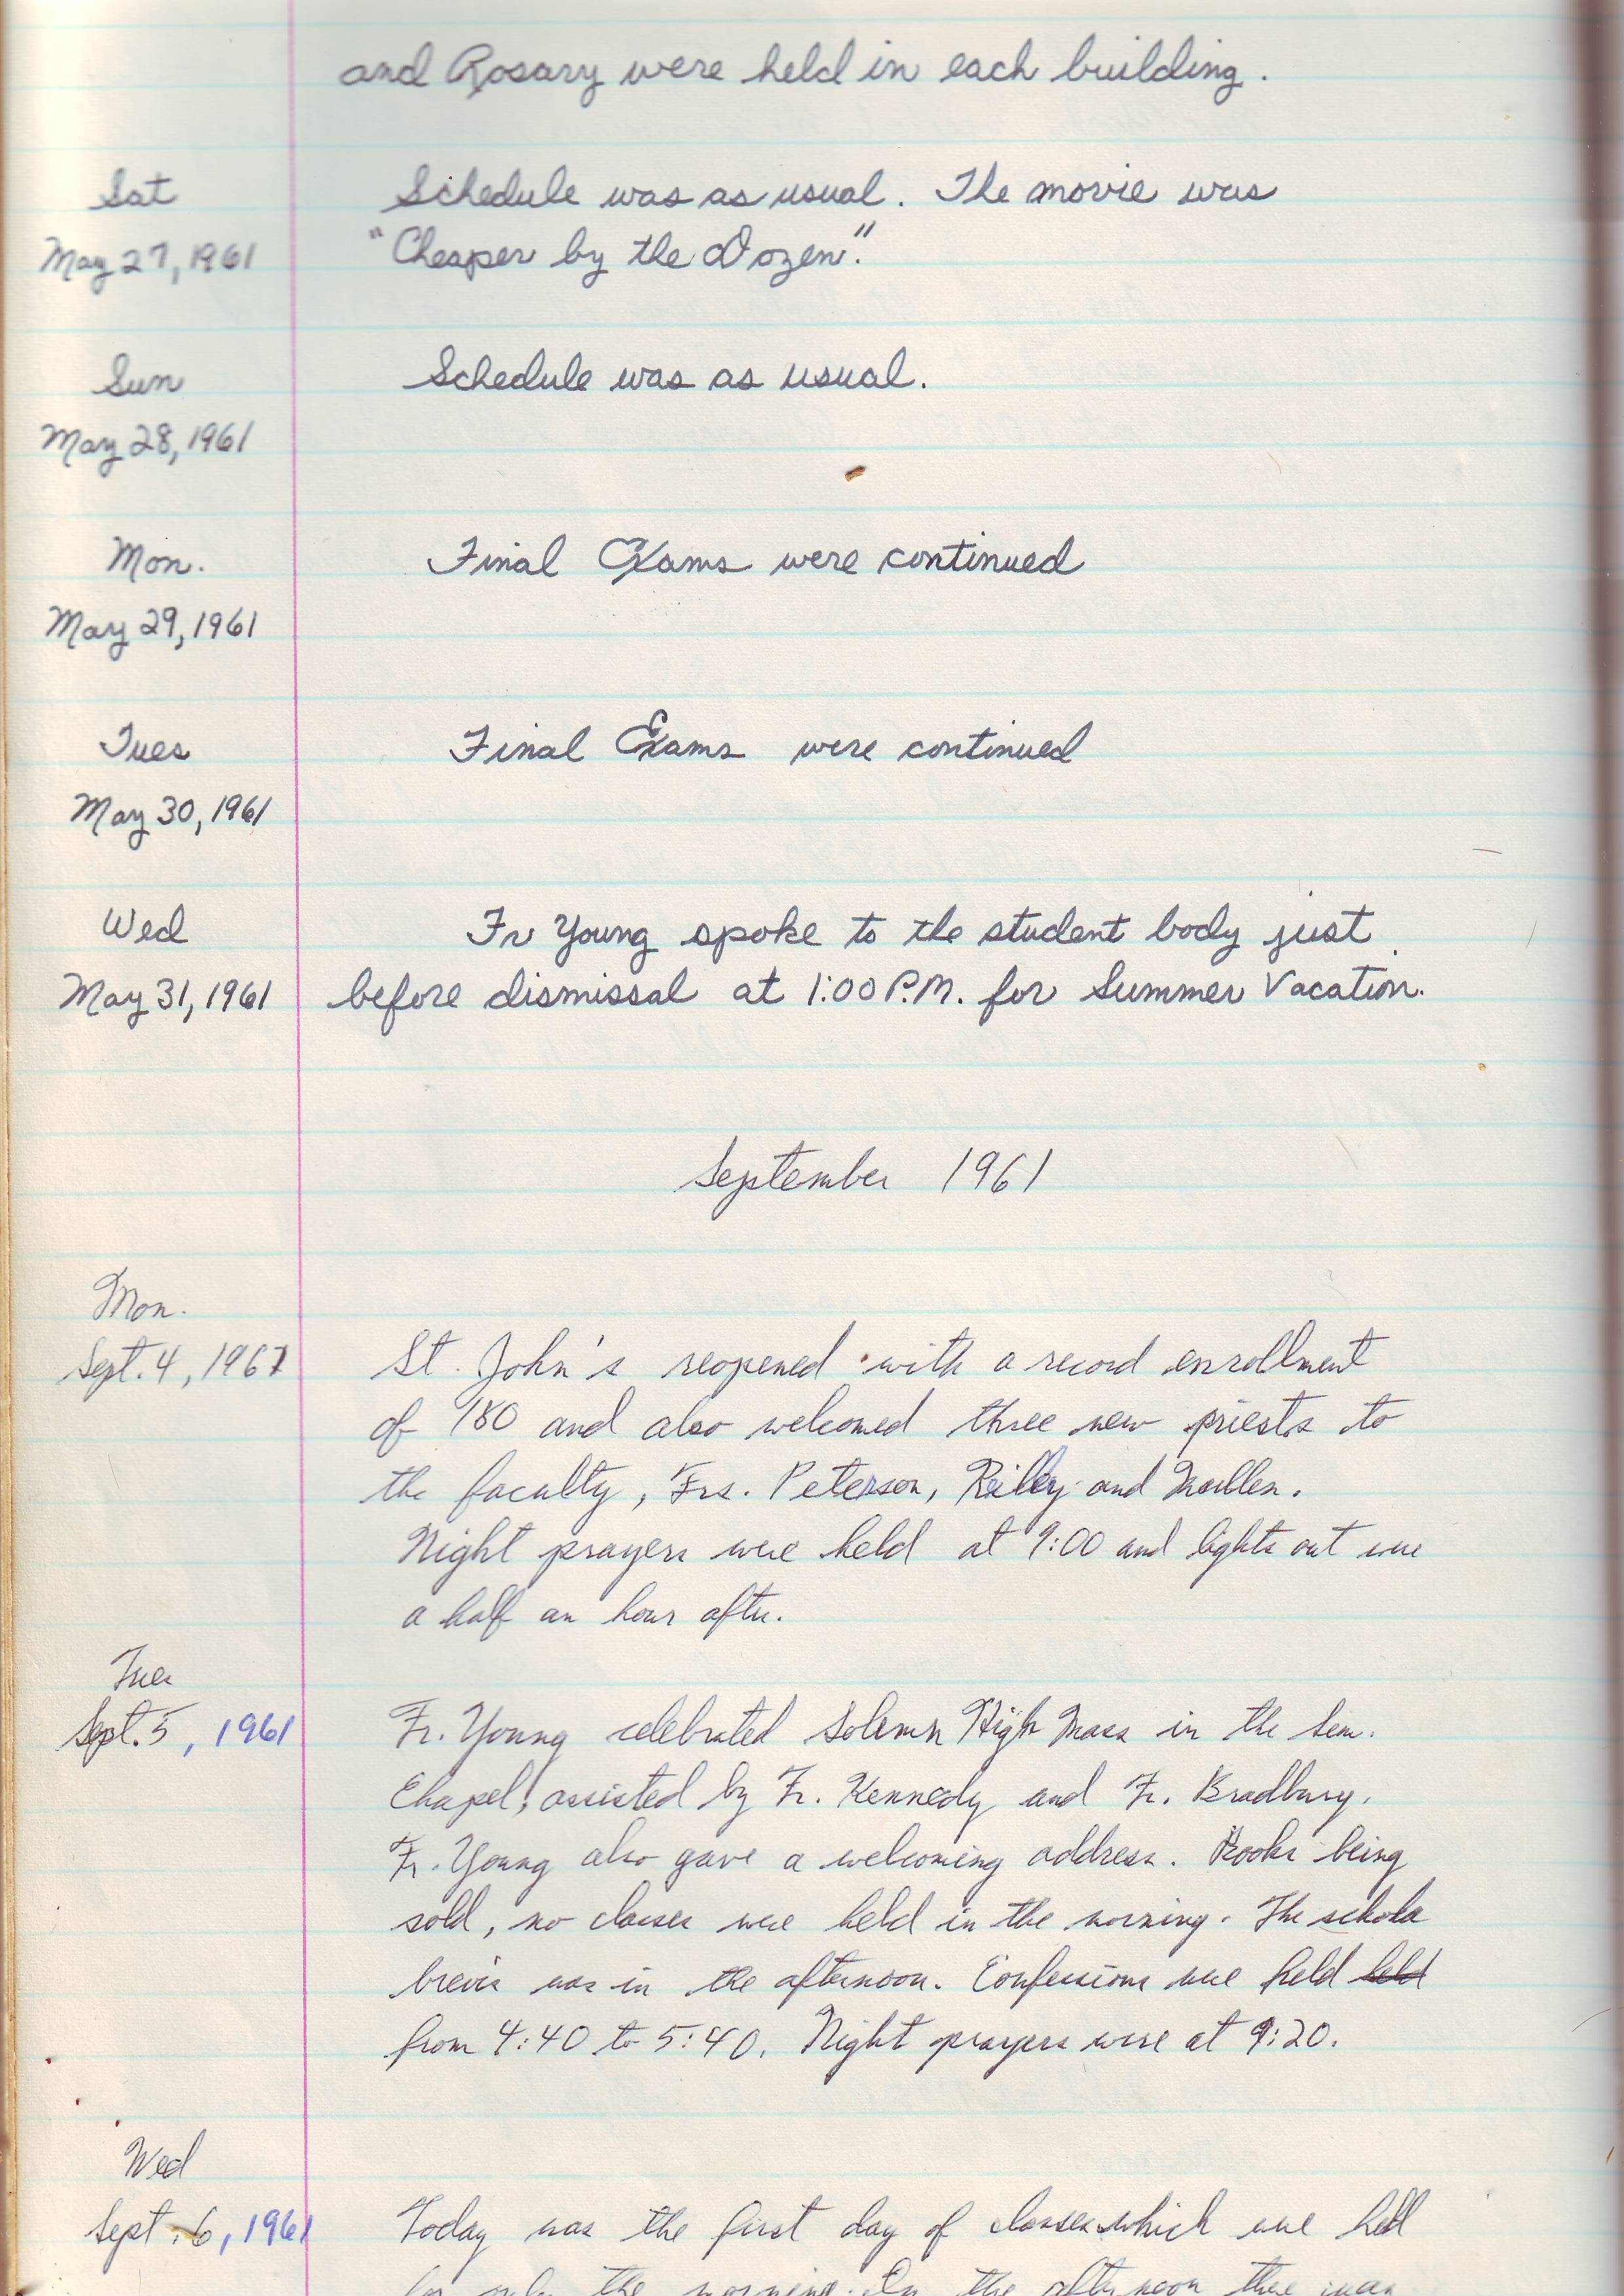 and Rosary were held in each building.
Sat
Schedule was as usual. The movie was
May 27, 1961
"Cheaper by the Dozen."
Sun
Schedule was as usual.
May 28, 1961
Mon.
Final Exams were continued
May 29, 1961
Tues
Final Exams were continued
May 30, 1961
Wed
Fr Young spoke to the student body just
May 31, 1961
before dismissal at 1:00 P.M. for Summer Vacation.
September 1961
Mon.
Sept. 4, 1961
St. John's reopened with a record enrollment
of 180 and also welcomed three new priests to
the faculty, Frs. Peterson, Reilly and
Night prayers were held at 9:00 and lights out were
a half an hour after.
Tues
Sept. 5, 1961
Fr. Young celebrated Solemn High Mass in the Sem.
Chapel, assisted by Fr. Kennedy and Fr. Bradbury.
Fr. Young also gave a welcoming address. Books being
sold, no classes were held in the morning. The schola
brevis was in the afternoon. Confessions were held held
from 4:40 to 5:40. Night prayers were at 9:20.
Wed
Sept. 6, 1961
Today was the first day of classes which were held
for only the morning. In the afternoon there was